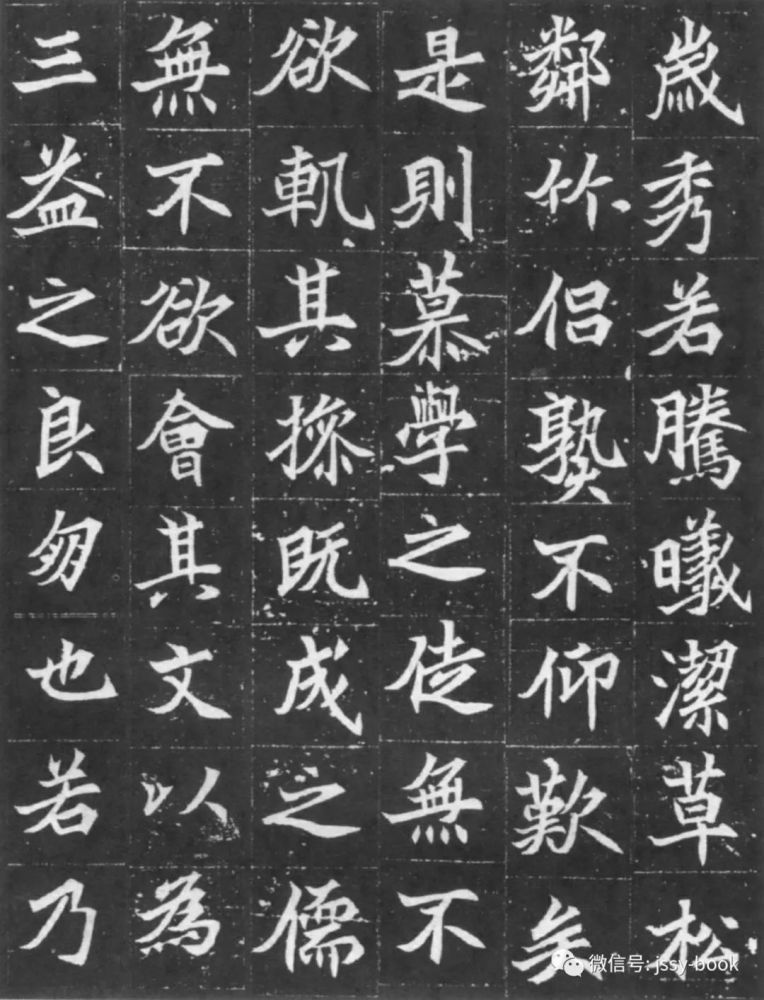 歲秀若騰曦潔草松
鄰竹侶孰不仰歎矣
是則慕學之徒無不
欲軌其操既成之儒
無不欲會其文以為
三益之良朋也若乃
微信号: jssy-book